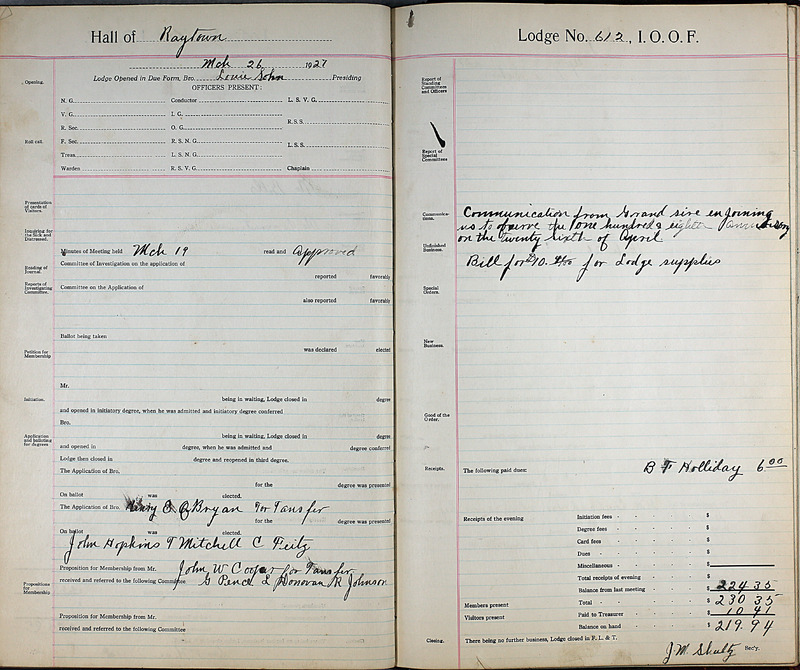 Hall of Raytown
Mch 26 1927
Lodge Opened in Due Form, Bro. Louie Sohn Presiding
OFFICERS PRESENT:
Opening.
N. G. Conductor L. S. V. G.
V. G. I. G. R. S. S.
R. Sec. O. G.
Roll call.
F. Sec. R. S. N. G. L. S. S.
Treas. L. S. N. G.
Warden R. S. V. G. Chaplain
Presentation of cards of Visitors.
Inquiring for the Sick and Distressed.
Minutes of Meeting held Mch 19 read and Approved
Reading of Journal.
Committee of Investigation on the application of
reported favorably
Reports of Investigating Committee.
Committee on the Application of
also reported favorably
Ballot being taken
was declared elected
Petition for Membership
Mr.
Initiation.
being in waiting, Lodge closed in degree
and opened in initiatory degree, when he was admitted and initiatory degree conferred
Bro.
Application and balloting for degrees
being in waiting, Lodge closed in degree
and opened in degree, when he was admitted and degree conferred
Lodge then closed in degree and reopened in third degree.
The Application of Bro.
for the degree was presented
On ballot was elected.
The Application of Bro. Henry E C Bryan For Tansfer
for the degree was presented
On ballot was elected.
John Hopkins T Mitchell C Feitz
Proposition for Membership from Mr. John W Cooper for Tansfer
received and referred to the following Committee G Pence L Donovan R Johnson
Propositions for Membership
Proposition for Membership from Mr.
received and referred to the following Committee
Lodge No. 612, I. O. O. F.
Report of Standing Committees and Officers
Report of Special Committees
Communications.
Communication from Grand sire enjoining
us to observe the one hundred & eighth Anniversary
on the twenty sixth of April
Unfinished Business.
Bill for $10. for Lodge supplies
Special Orders.
New Business.
Good of the Order.
Receipts.
The following paid dues: B F Holliday 6 00
Receipts of the evening Initiation fees $
Degree fees $
Card fees $
Dues $
Miscellaneous $
Total receipts of evening $
Balance from last meeting $ 224 35
Members present Total $ 230 35
Visitors present Paid to Treasurer $ 10 41
Balance on hand $ 219.94
Closing. There being no further business, Lodge closed in F. L. & T.
J. M. Shultz Sec'y.